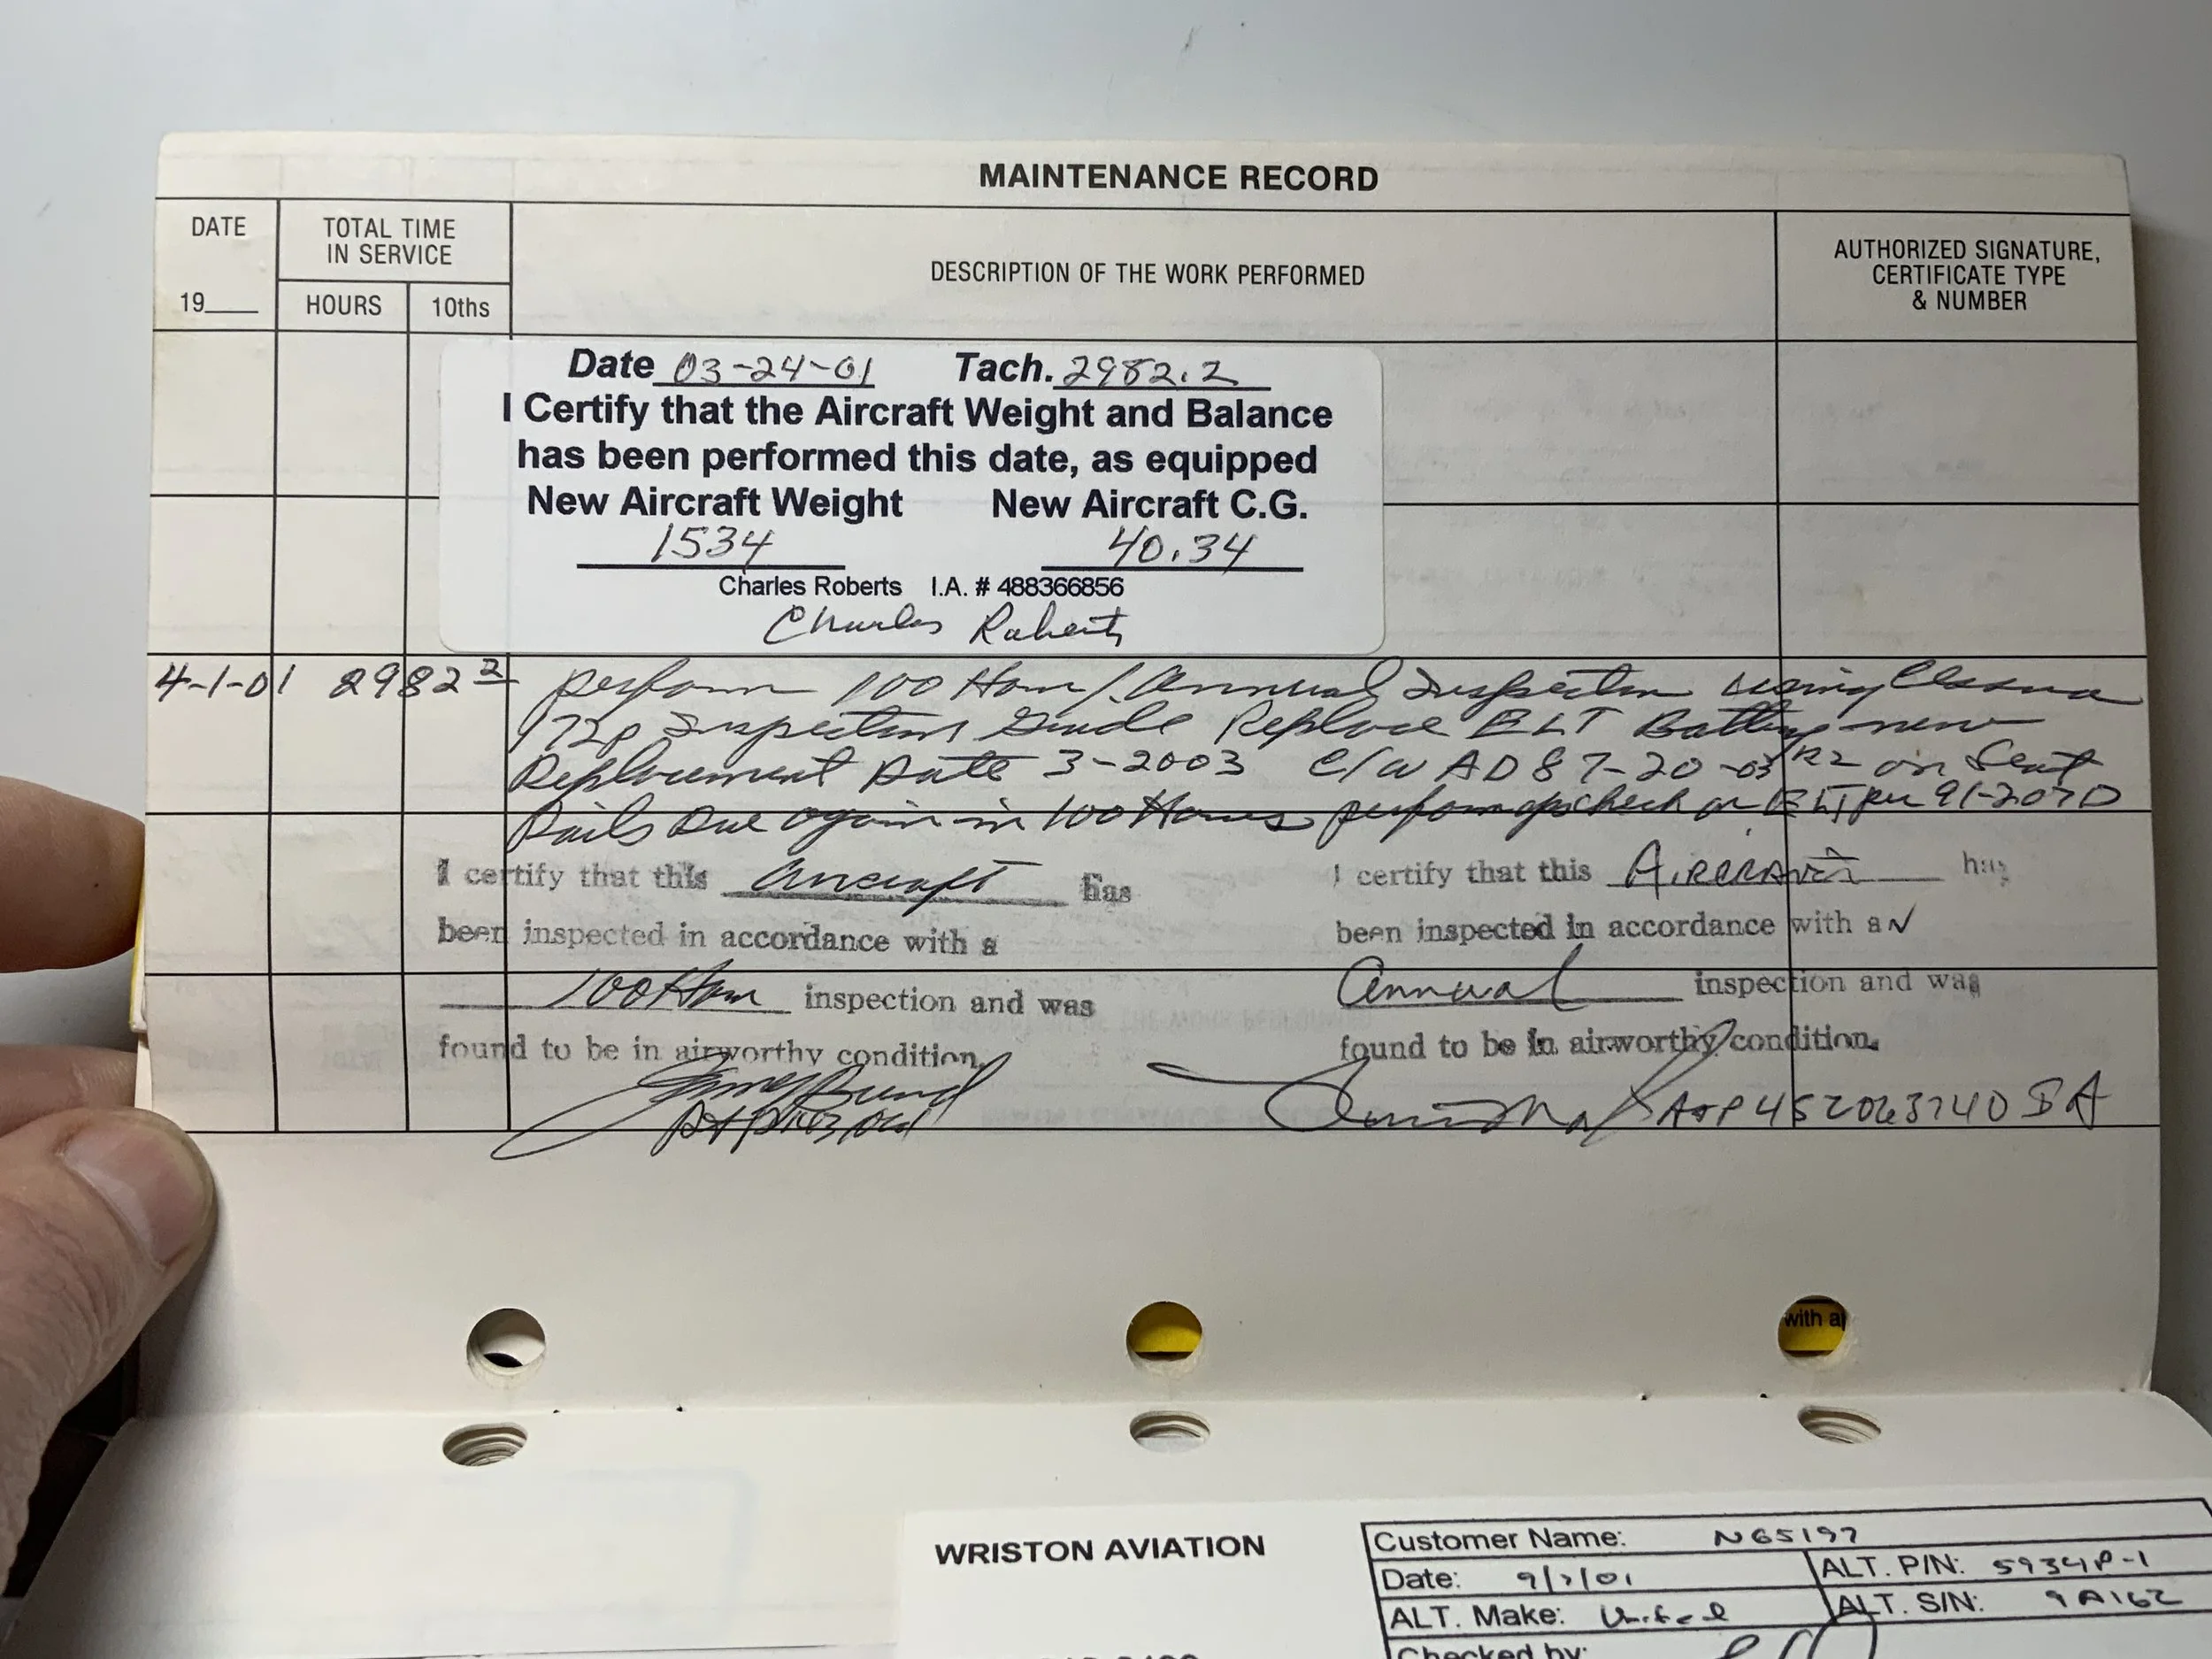 MAINTENANCE RECORD
DATE
19____
TOTAL TIME
IN SERVICE
HOURS
10ths
DESCRIPTION OF THE WORK PERFORMED
AUTHORIZED SIGNATURE,
CERTIFICATE TYPE
& NUMBER
Date 03-24-01 Tach. 2982.2
I Certify that the Aircraft Weight and Balance
has been performed this date, as equipped
New Aircraft Weight New Aircraft C.G.
1534 40.34
Charles Roberts I.A. # 488366856
Charles Roberts
4-1-01 2982 2 perform 100 Hour/Annual Inspection using Cessna
172p Inspection Guide Replace ELT Battery new
Replacement Date 3-2003 C/W AD 87-20-03 R2 on Seat
Rails Due again in 100 Hours perform ops check on ELT per 91-207D
I certify that this aircraft has
been inspected in accordance with a
100 Hour inspection and was
found to be in airworthy condition.
I certify that this AIRCRAFT has
been inspected in accordance with aN
Annual inspection and was
found to be in airworthy condition.
A&P 452063740 IA
with a
WRISTON AVIATION
Customer Name: N65197
Date: 9/7/01 ALT. P/N: 5934P-1
ALT. Make: United ALT. S/N: 9A162
Checked by: